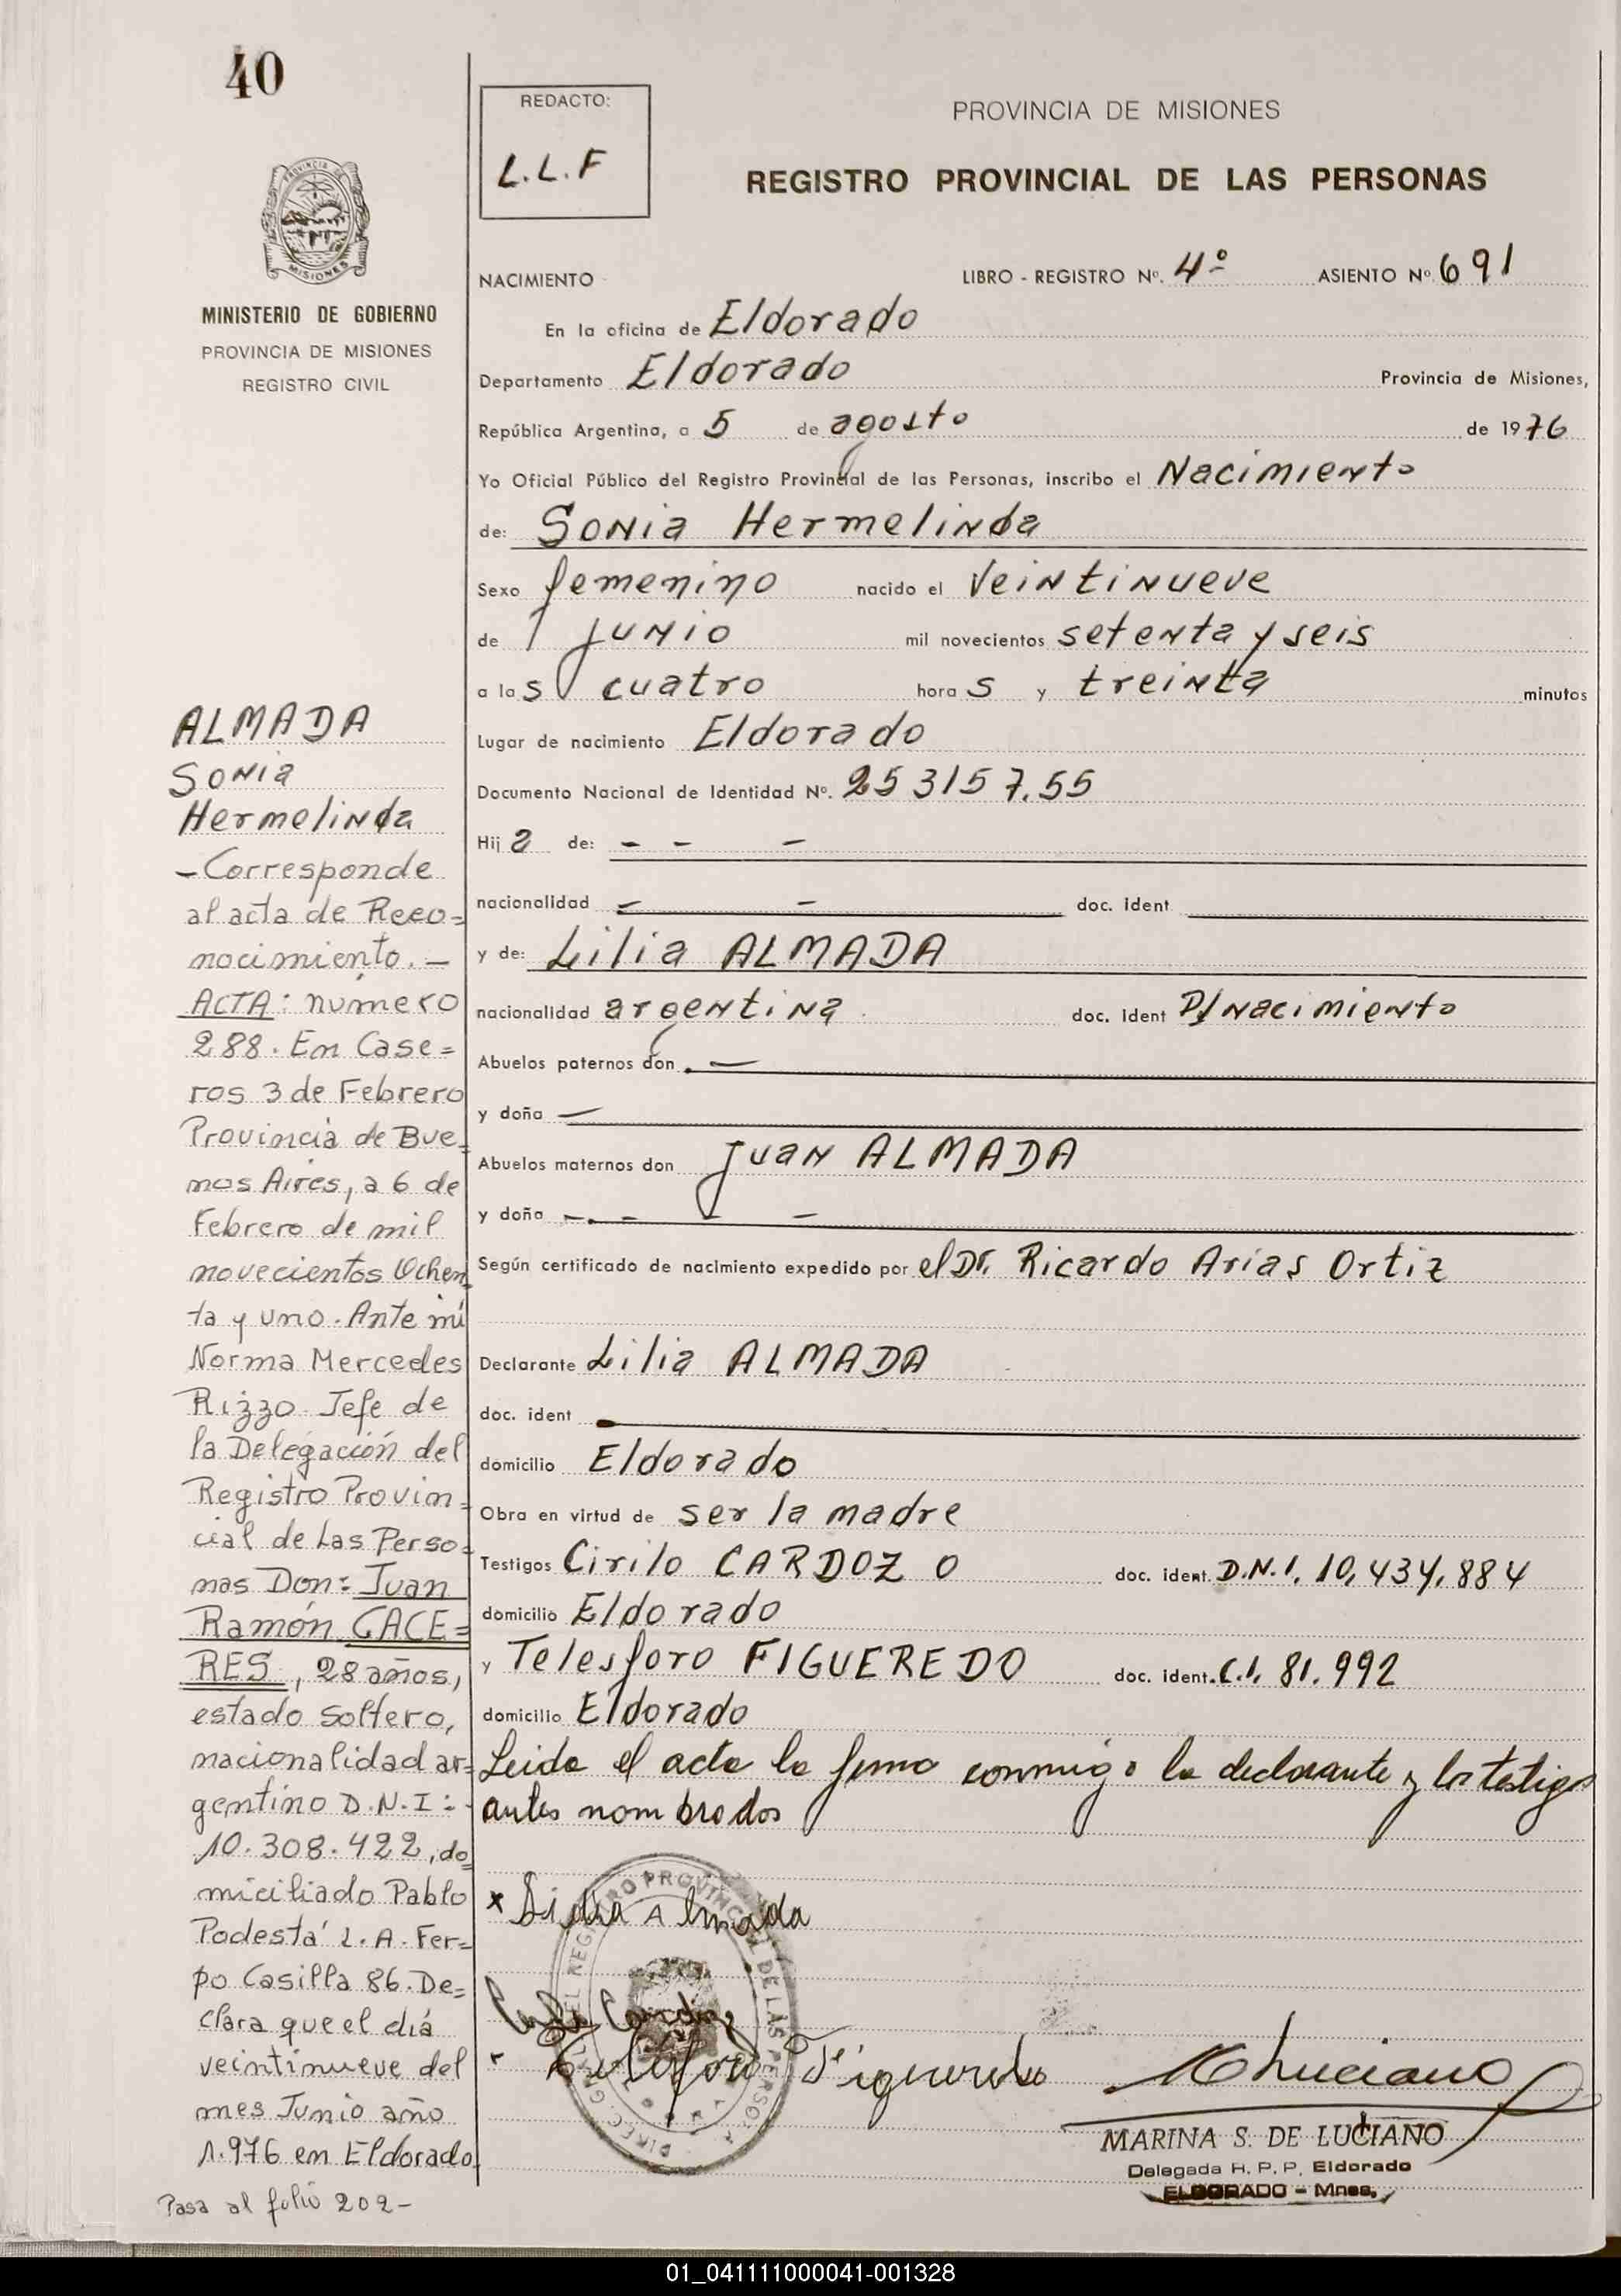 40
REDACTO:
L.L.F
PROVINCIA DE MISIONES
REGISTRO PROVINCIAL DE LAS PERSONAS
PROVINCIA DE
MISIONES
MINISTERIO DE GOBIERNO
PROVINCIA DE MISIONES
REGISTRO CIVIL
NACIMIENTO LIBRO - REGISTRO Nº. 4º ASIENTO Nº. 691
En la oficina de Eldorado
Departamento Eldorado Provincia de Misiones,
República Argentina, a 5 de agosto de 1976
Yo Oficial Público del Registro Provincial de las Personas, inscribo el Nacimiento
de: Sonia Hermelinda
Sexo femenino nacido el veintinueve
de junio mil novecientos setenta y seis
a las cuatro horas y treinta minutos
Lugar de nacimiento Eldorado
Documento Nacional de Identidad Nº. 253157.55
Hija de: - - -
nacionalidad - - doc. ident
y de: Lilia ALMADA
nacionalidad argentina. doc. ident P/Nacimiento
Abuelos paternos don . —
y doña —
Abuelos maternos don Juan ALMADA
y doña -. - - -
Según certificado de nacimiento expedido por el Dr. Ricardo Arias Ortiz
Declarante Lilia ALMADA
doc. ident
domicilio Eldorado
Obra en virtud de ser la madre
Testigos Cirilo CARDOZO doc. ident. D.N.I. 10,434,884
domicilio Eldorado
y Telesforo FIGUEREDO doc. ident. C.I. 81.992
domicilio Eldorado
Leida el acta la firma conmigo la declarante y los testigos
antes nombrados
ALMADA
Sonia
Hermelinda
- Corresponde
al acta de Reco=
nocimiento. -
ACTA: número
288. En Case=
ros 3 de Febrero
Provincia de Bue=
nos Aires, a 6 de
Febrero de mil
novecientos Ochen
ta y uno. Ante mí
Norma Mercedes
Rizzo Jefe de
la Delegación del
Registro Provin=
cial de Las Perso=
nas Don: Juan
Ramón CACE=
RES, 28 años,
estado soltero,
nacionalidad ar=
gentino D.N.I:
10.308.422, do=
miciliado Pablo
Podestá L. A. Fer=
po Casilla 86. De=
clara que el día
veintinueve del
mes Junio año
1.976 en Eldorado
Pasa al folio 202-
x Lidia Almada
Telesforo Figueredo
MARINA S. DE LUCIANO
Delegada R. P. P. Eldorado
ELDORADO - Mnes.
01_041111000041-001328